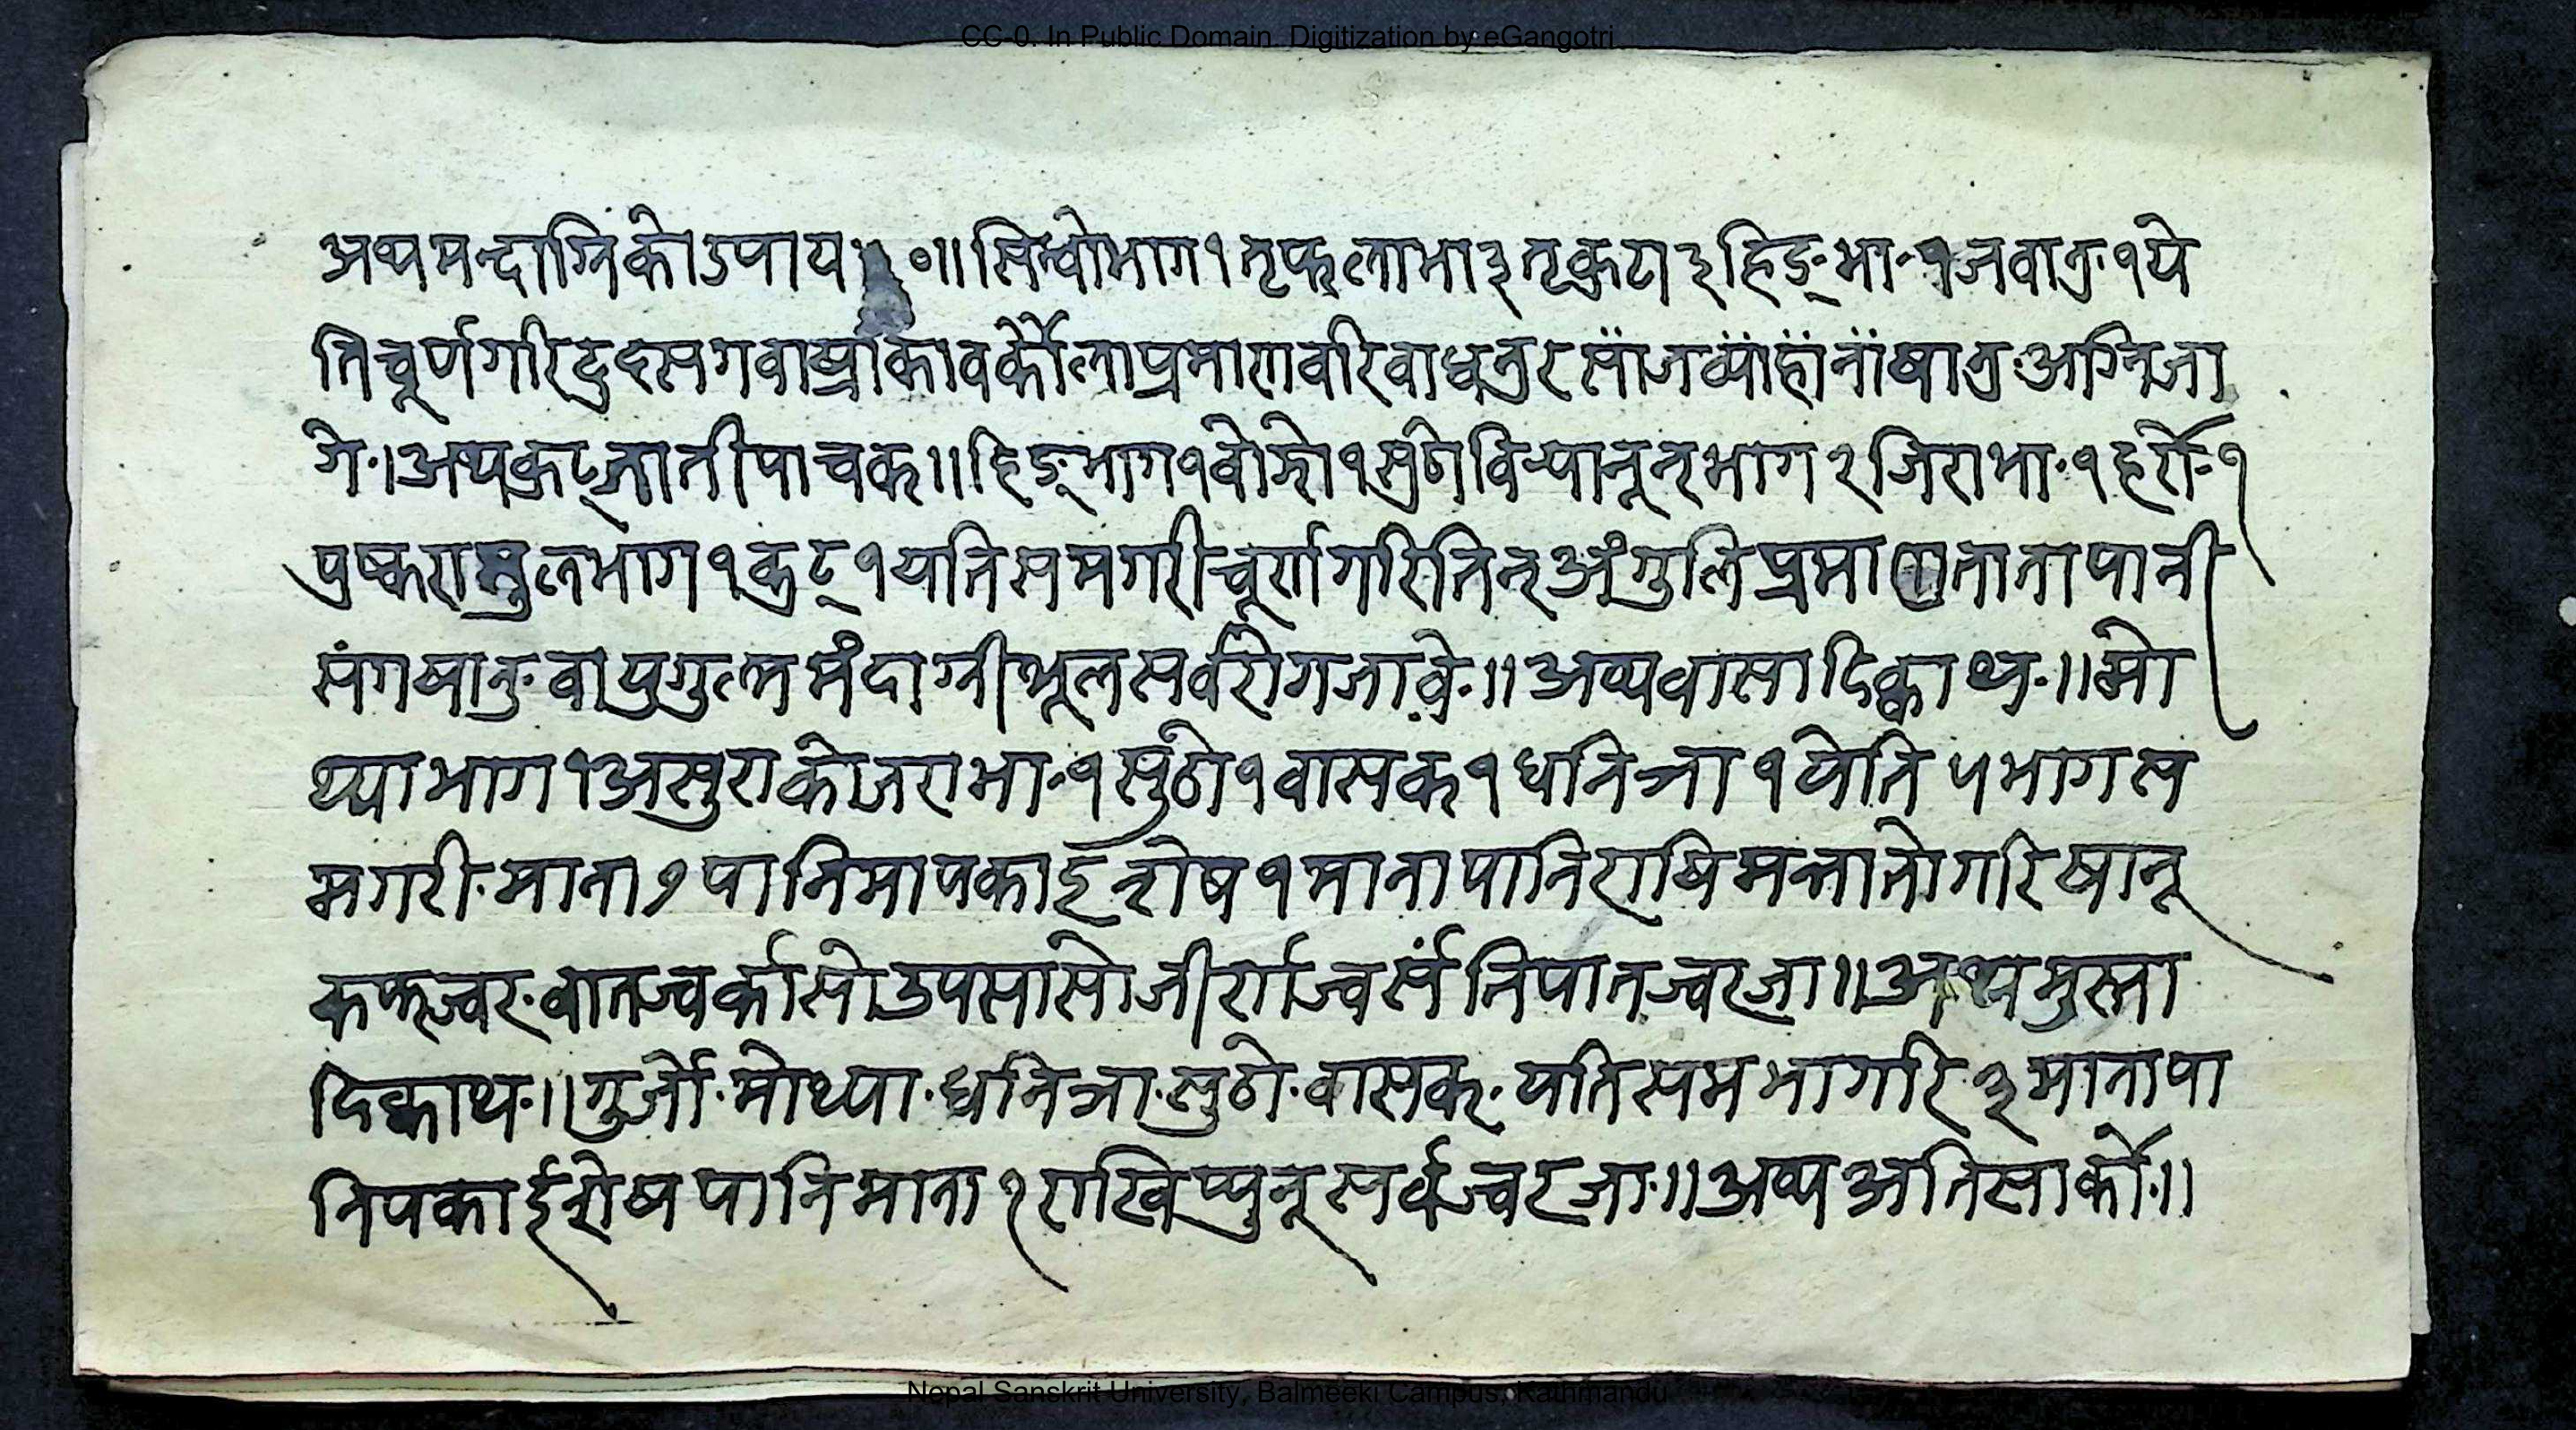 CC-0. In Public Domain. Digitization by eGangotri
अथ मन्दाग्निको उपाय ॥ ० ॥ सिन्धोभाग १ तृफलाभा ३ तृकुटा ३ हिङ्भा॰ १ जवानु १ ये
ति चूर्ण गरि दुद सग वा प्रमाण वरि वाधनु र साँज व्याँहाँनाँ षानु अग्नि जा
गे॰। अथ पाचक ॥ हिङ्भाग १ वोझो १ सुठो विर्‍यानून भाग २ जिराभा॰ १ हर्रो॰ १
पुष्करमुलभाग १ कुट् १ यति समगरी चूर्ण गरि तिन् अंगुलि प्रमाण ताता पानी
संग षानु वायुगुल्म मंदाग्नी शूल सर्वरोग जावे॰॥ अथ वासादि क्वाथ॰॥ मो
थ्या भाग १ असुराको जराभा॰ १ सुंठो १ वासक १ धनिञा १ येति ५ भाग स
मगरी॰ माना ७ पानिमा पकाई शेष १ माना पानि राषि मन्तातो गरि षानू
कफज्वर॰ वातज्वर्का सो उपसासो जीर्णज्वर्सं निपातज्वर जा॥ अथ मुस्ता
दि क्वाथ॰॥ गुर्जो॰ मोथ्या॰ धनिञा॰ सुठो॰ वासक॰ यति सम भागरि ३ माना पा
नि पकाई शेष पानि माना १ राखि प्युनू सर्वज्वर जा॰॥ अथ अतिसार्को॰॥
Nepal Sanskrit University, Balmeeki Campus, Kathmandu